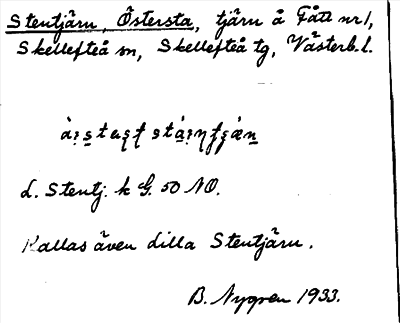 Stentjärn, Östersta, tjärn å Fått nr 1,
Skellefteå sn, Skellefteå tg, Västerb. l.
d. Stentj. k G. 50 NO.
Kallas även lilla Stentjärn.
B. Nygren 1933.